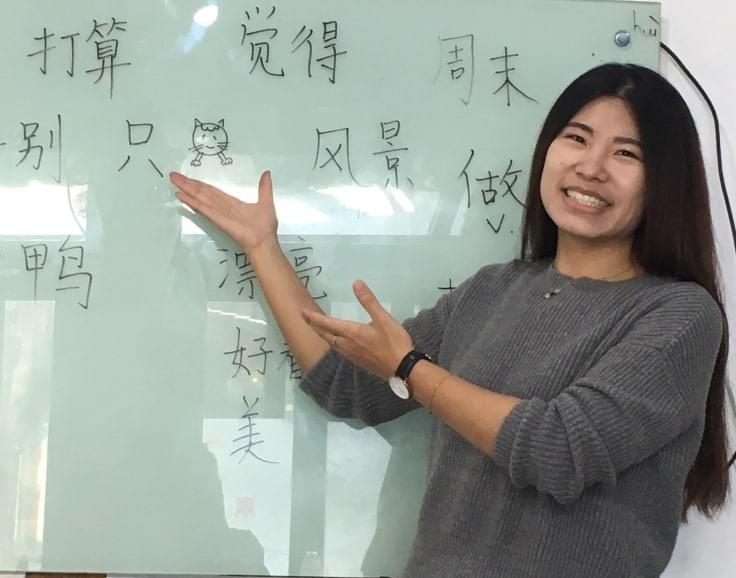 huì
打算 觉得 周末
别 只 风景 做
v.
鸭 漂亮
好看
美